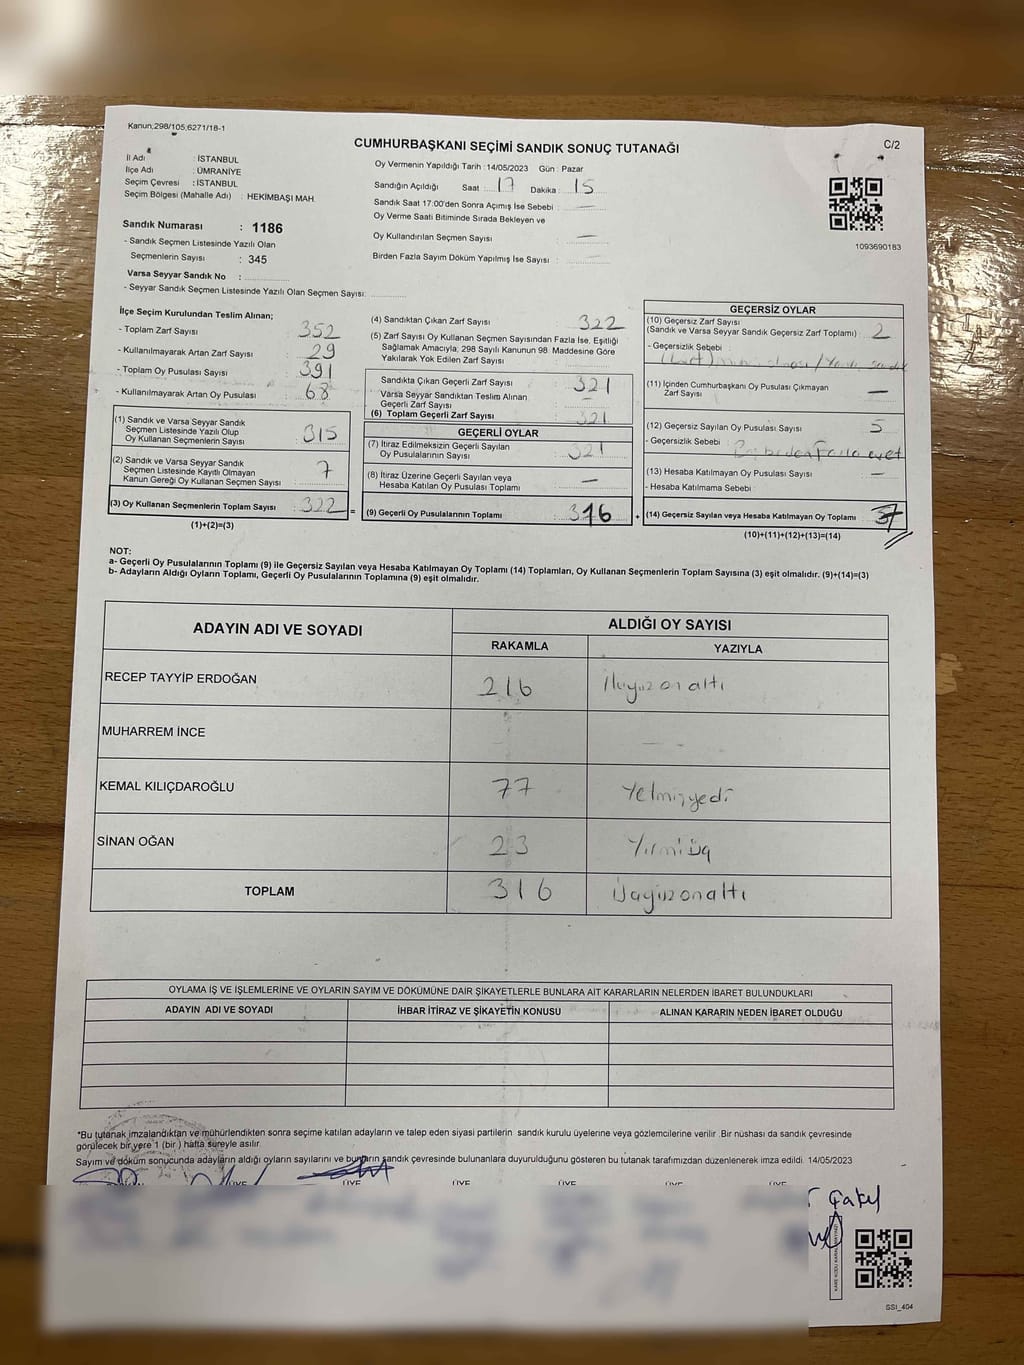 Kanun;298/105;6271/18-1
C/2
CUMHURBAŞKANI SEÇİMİ SANDIK SONUÇ TUTANAĞI
İl Adı : İSTANBUL
İlçe Adı : ÜMRANİYE
Seçim Çevresi : İSTANBUL
Seçim Bölgesi (Mahalle Adı) : HEKİMBAŞI MAH.
Sandık Numarası : 1186
- Sandık Seçmen Listesinde Yazılı Olan
Seçmenlerin Sayısı : 345
Varsa Seyyar Sandık No :
- Seyyar Sandık Seçmen Listesinde Yazılı Olan Seçmen Sayısı:
Oy Vermenin Yapıldığı Tarih : 14/05/2023 Gün : Pazar
Sandığın Açıldığı Saat : 17 Dakika : 15
Sandık Saat 17:00'den Sonra Açımış İse Sebebi : —
Oy Verme Saati Bitiminde Sırada Bekleyen ve
Oy Kullandırılan Seçmen Sayısı : —
Birden Fazla Sayım Döküm Yapılmış İse Sayısı : —
1093690183
İlçe Seçim Kurulundan Teslim Alınan;
- Toplam Zarf Sayısı 352
- Kullanılmayarak Artan Zarf Sayısı : 29
- Toplam Oy Pusulası Sayısı : 391
- Kullanılmayarak Artan Oy Pusulası : 68
(1) Sandık ve Varsa Seyyar Sandık
Seçmen Listesinde Yazılı Olup
Oy Kullanan Seçmenlerin Sayısı : 315
(2) Sandık ve Varsa Seyyar Sandık
Seçmen Listesinde Kayıtlı Olmayan
Kanun Gereği Oy Kullanan Seçmen Sayısı : 7
(3) Oy Kullanan Seçmenlerin Toplam Sayısı : 322 =
(1)+(2)=(3)
(4) Sandıktan Çıkan Zarf Sayısı : 322
(5) Zarf Sayısı Oy Kullanan Seçmen Sayısından Fazla İse, Eşitliği
Sağlamak Amacıyla, 298 Sayılı Kanunun 98. Maddesine Göre
Yakılarak Yok Edilen Zarf Sayısı :
Sandıkta Çıkan Geçerli Zarf Sayısı : 321
Varsa Seyyar Sandıktan Teslim Alınan
Geçerli Zarf Sayısı :
(6) Toplam Geçerli Zarf Sayısı : 321
GEÇERLİ OYLAR
(7) İtiraz Edilmeksizin Geçerli Sayılan
Oy Pusulalarının Sayısı : 321
(8) İtiraz Üzerine Geçerli Sayılan veya
Hesaba Katılan Oy Pusulası Toplamı : —
(9) Geçerli Oy Pusulalarının Toplamı : 316 +
GEÇERSİZ OYLAR
(10) Geçersiz Zarf Sayısı
(Sandık ve Varsa Seyyar Sandık Geçersiz Zarf Toplamı) : 2
- Geçersizlik Sebebi :
(11) İçinden Cumhurbaşkanı Oy Pusulası Çıkmayan
Zarf Sayısı : —
(12) Geçersiz Sayılan Oy Pusulası Sayısı : 5
- Geçersizlik Sebebi : Birden Fazla evet
(13) Hesaba Katılmayan Oy Pusulası Sayısı : —
- Hesaba Katılmama Sebebi :
(14) Geçersiz Sayılan veya Hesaba Katılmayan Oy Toplamı : 7
(10)+(11)+(12)+(13)=(14)
NOT:
a- Geçerli Oy Pusulalarının Toplamı (9) ile Geçersiz Sayılan veya Hesaba Katılmayan Oy Toplamı (14) Toplamları, Oy Kullanan Seçmenlerin Toplam Sayısına (3) eşit olmalıdır. (9)+(14)=(3)
b- Adayların Aldığı Oyların Toplamı, Geçerli Oy Pusulalarının Toplamına (9) eşit olmalıdır.
ADAYIN ADI VE SOYADI
ALDIĞI OY SAYISI
RAKAMLA YAZIYLA
RECEP TAYYİP ERDOĞAN 216 İkiyüzonaltı
MUHARREM İNCE
KEMAL KILIÇDAROĞLU 77 Yetmişyedi
SİNAN OĞAN 23 Yirmiüç
TOPLAM 316 Üçyüzonaltı
OYLAMA İŞ VE İŞLEMLERİNE VE OYLARIN SAYIM VE DÖKÜMÜNE DAİR ŞİKAYETLERLE BUNLARA AİT KARARLARIN NELERDEN İBARET BULUNDUKLARI
ADAYIN ADI VE SOYADI İHBAR İTİRAZ VE ŞİKAYETİN KONUSU ALINAN KARARIN NEDEN İBARET OLDUĞU
*Bu tutanak imzalandıktan ve mühürlendikten sonra seçime katılan adayların ve talep eden siyasi partilerin sandık kurulu üyelerine veya gözlemcilerine verilir .Bir nüshası da sandık çevresinde
görülecek bir yere 1 (bir ) hafta süreyle asılır.
Sayım ve döküm sonucunda adayların aldığı oyların sayılarını ve bunların sandık çevresinde bulunanlara duyurulduğunu gösteren bu tutanak tarafımızdan düzenlenerek imza edildi. 14/05/2023
ÜYE ÜYE ÜYE ÜYE ÜYE ÜYE
Çakıl
SSI_404